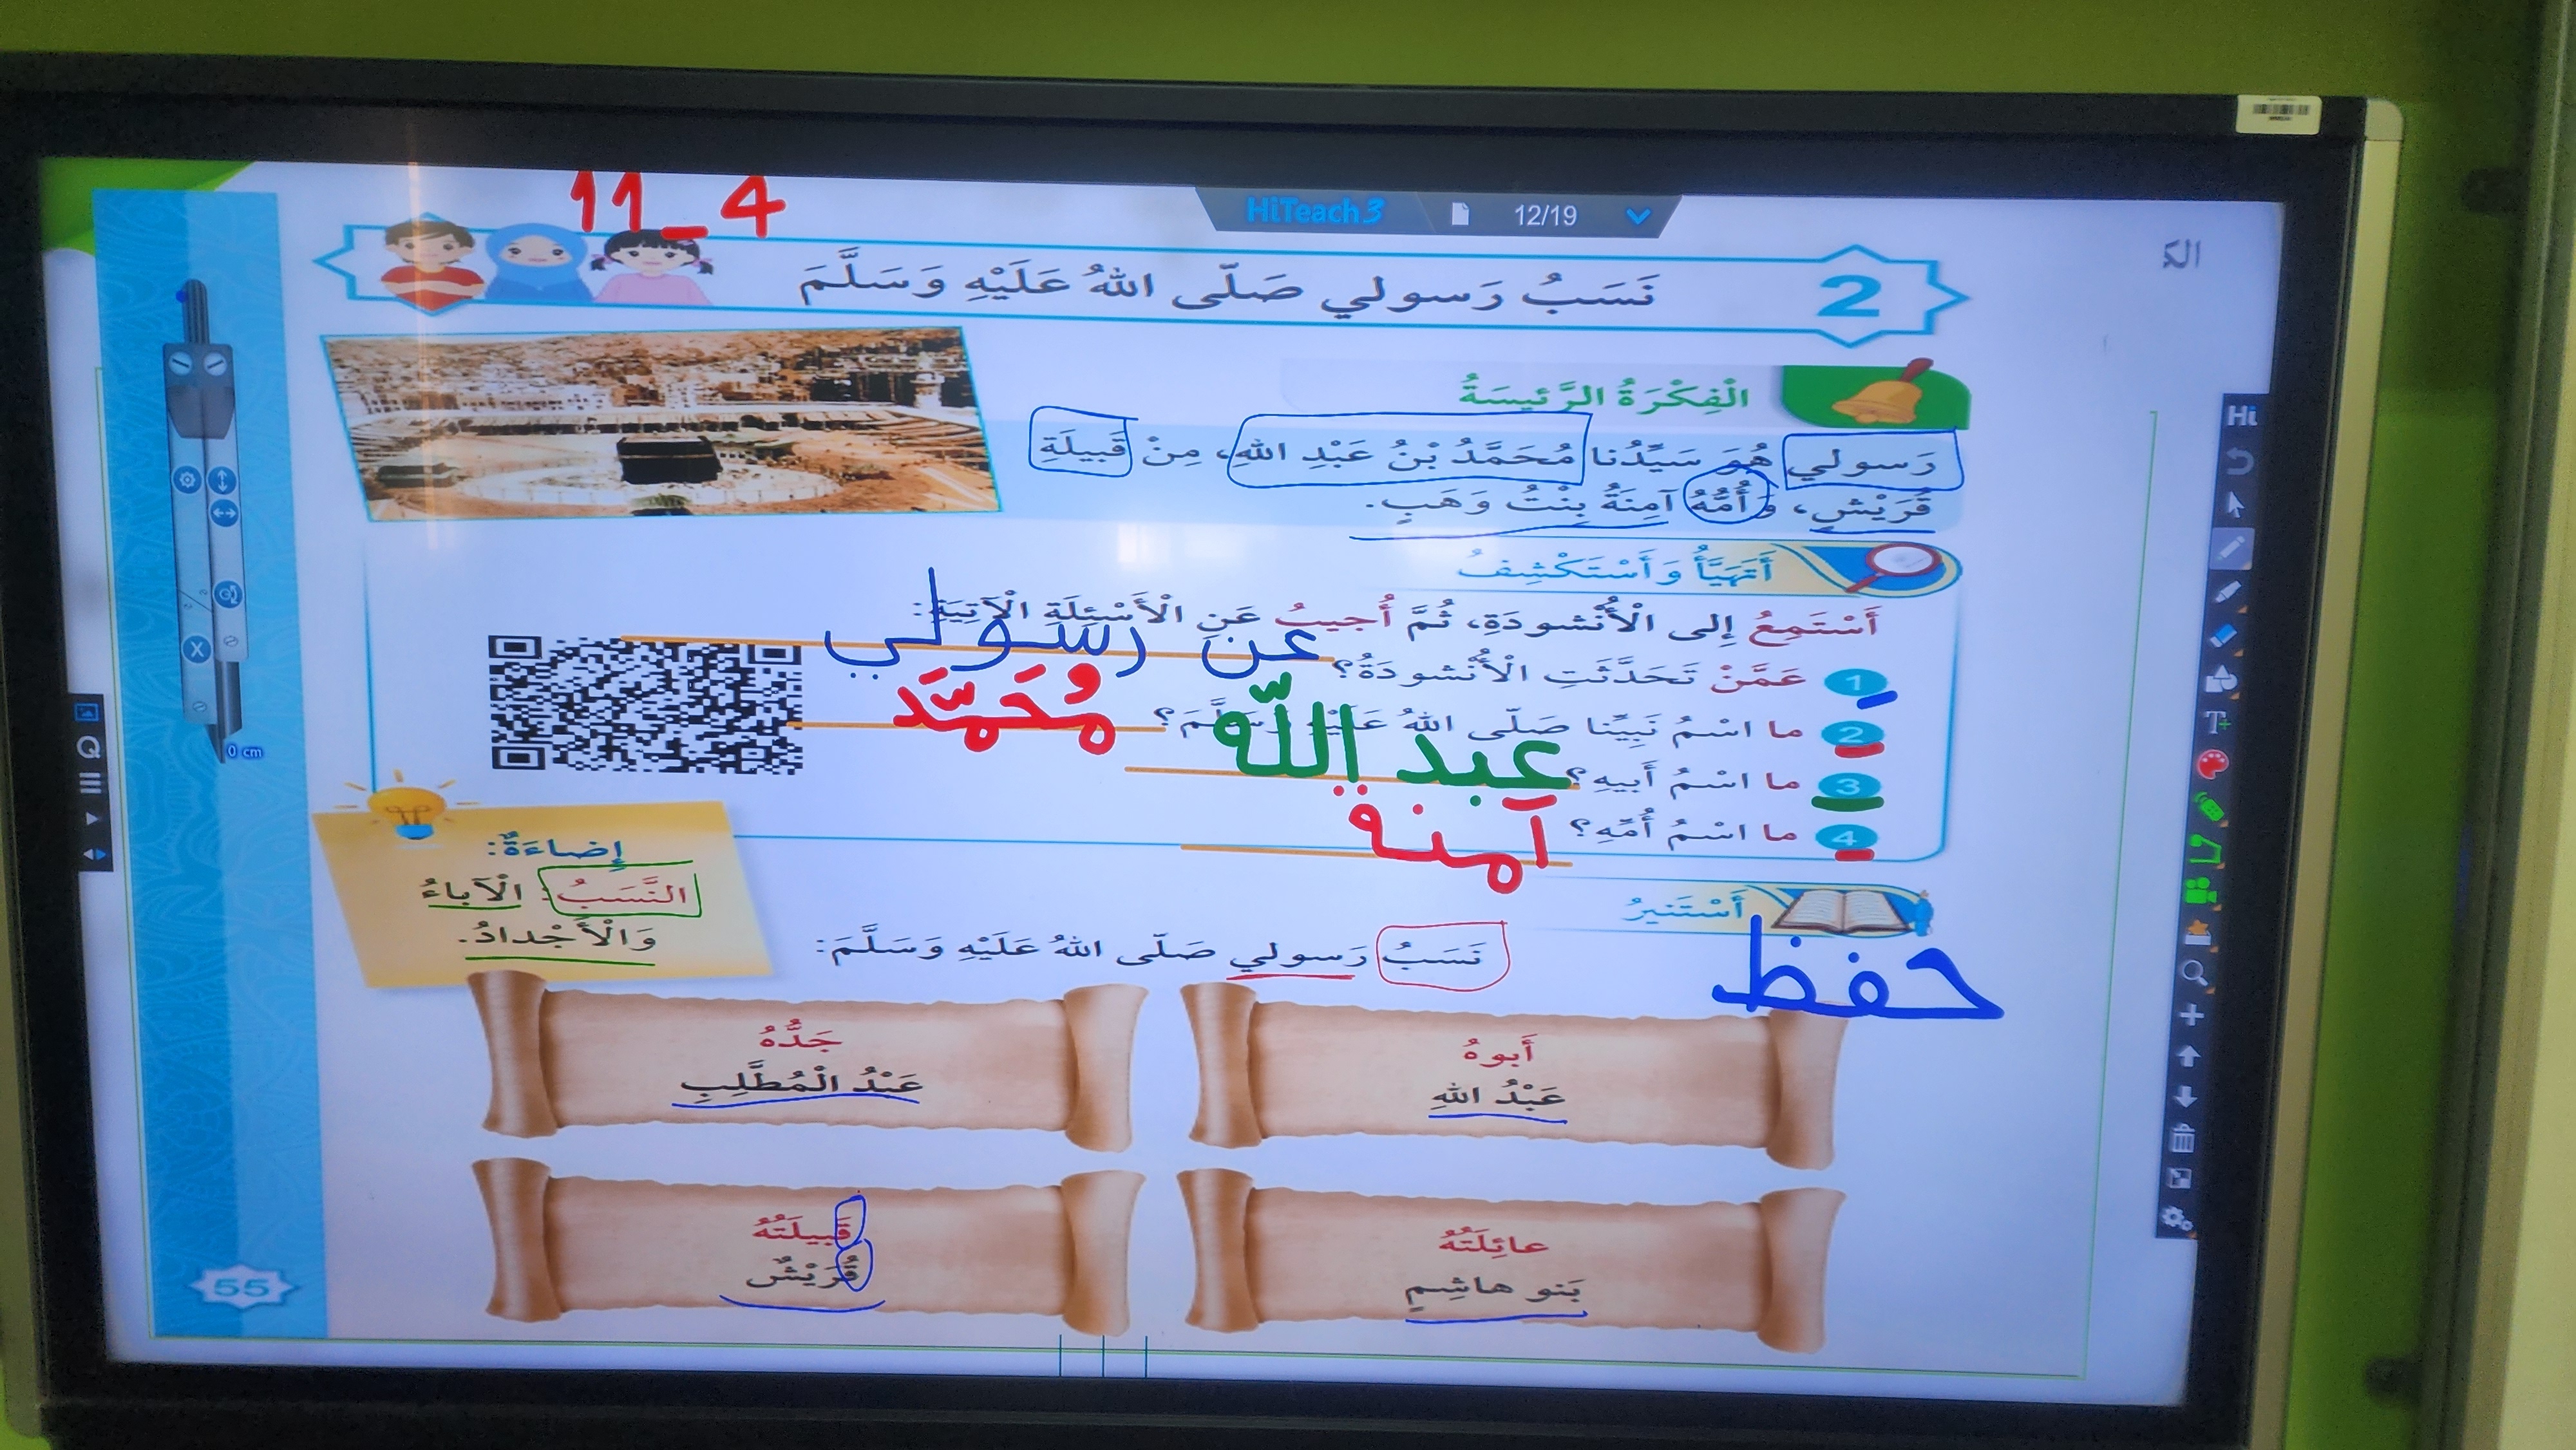 11_4
HiTeach3 12/19
الك
2 نَسَبُ رَسولي صَلّى اللهُ عَلَيْهِ وَسَلَّمَ
الْفِكْرَةُ الرَّئيسَةُ
رَسولي هُوَ سَيِّدُنا مُحَمَّدُ بْنُ عَبْدِ اللهِ، مِنْ قَبيلَةِ
قُرَيْشٍ، وَأُمُّهُ آمِنَةُ بِنْتُ وَهَبٍ.
أَتَهَيَّأُ وَأَسْتَكْشِفُ
أَسْتَمِعُ إِلى الْأُنْشودَةِ، ثُمَّ أُجيبُ عَنِ الْأَسْئِلَةِ الْآتِيَةِ:
1 عَمَّنْ تَحَدَّثَتِ الْأُنْشودَةُ؟ عن رسولي
2 ما اسْمُ نَبِيِّنا صَلّى اللهُ عَلَيْهِ وَسَلَّمَ؟ مُحَمَّد
3 ما اسْمُ أَبيهِ؟ عبد اللّه
4 ما اسْمُ أُمِّهِ؟ آمنة
إِضاءَةٌ:
النَّسَبُ: الْآباءُ
وَالْأَجْدادُ.
أَسْتَنيرُ
حفظ
نَسَبُ رَسولي صَلّى اللهُ عَلَيْهِ وَسَلَّمَ:
أَبوهُ
عَبْدُ اللهِ
جَدُّهُ
عَبْدُ الْمُطَّلِبِ
عائِلَتُهُ
بَنو هاشِمٍ
قَبيلَتُهُ
قُرَيْشٌ
55
0 cm
Hi